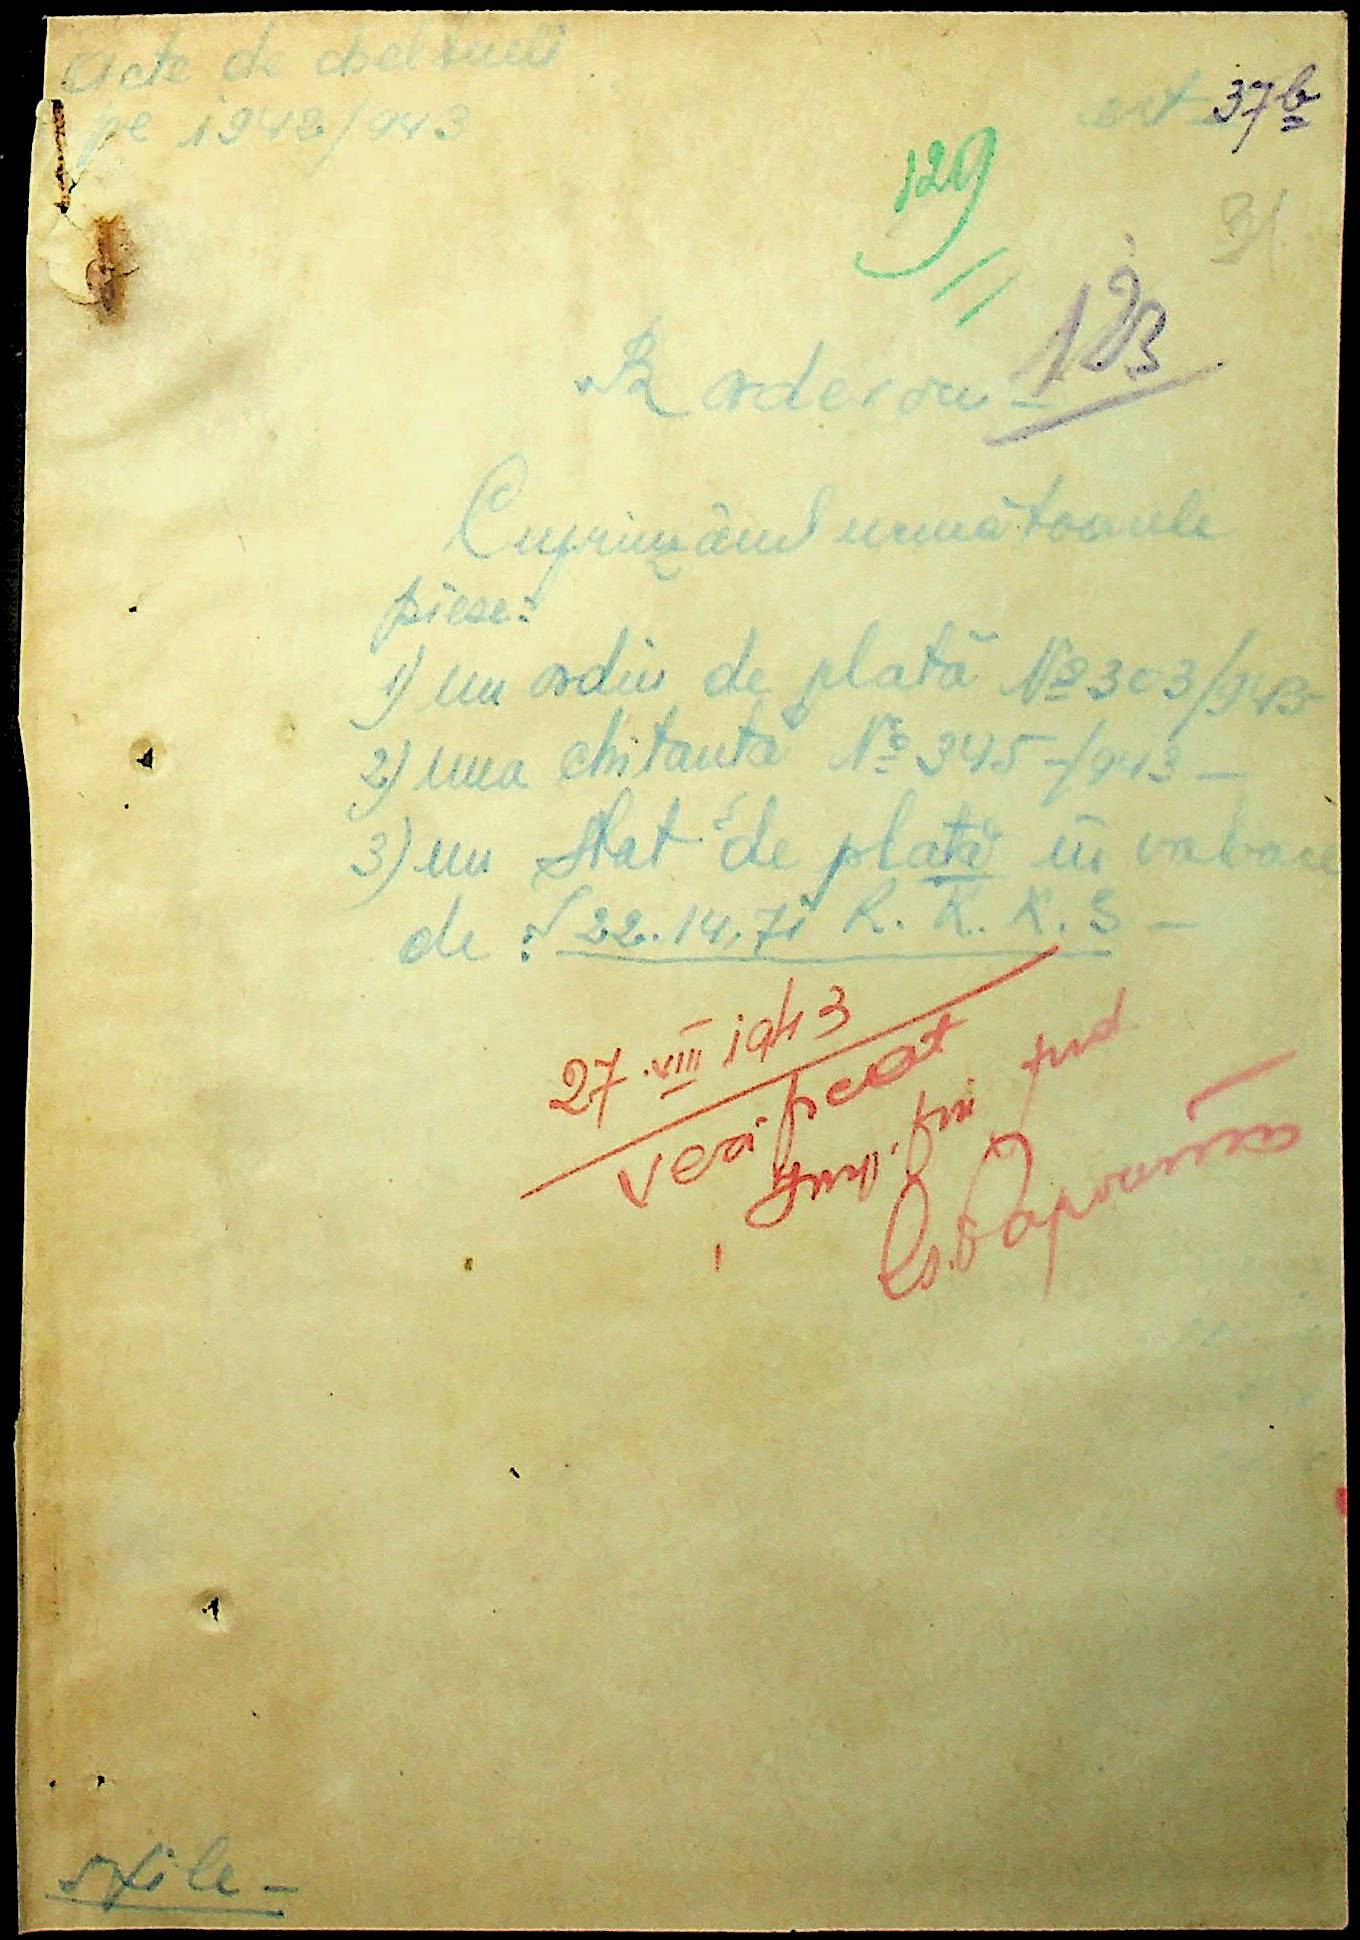 Acte de cheltueli
pe 1942/943
37 b
129
31
123
Borderou -
Cuprinzând urmatoarele
piese:
1) un ordin de plată No 303/943
2) una chitanta No 345-/943 -
3) un Stat de plată în valoare
de : 22.14,71 R. K. K. S -
27.VIII 1943
verificat
Imp. fin
file -